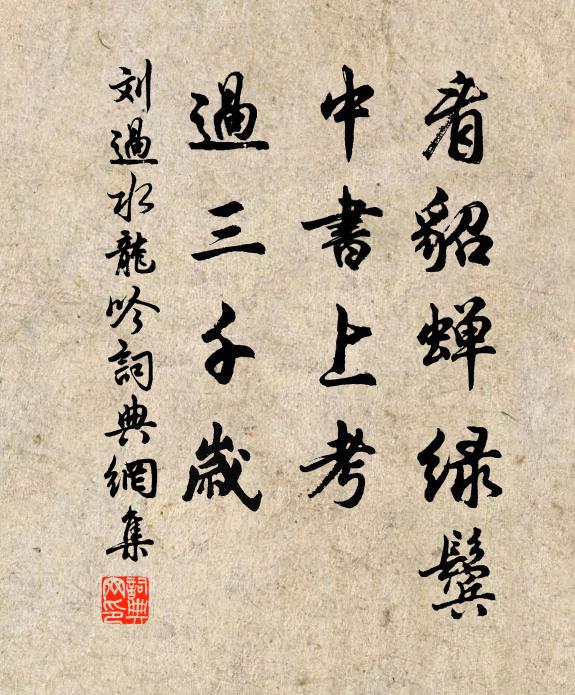 看貂蝉绿鬓
中書上考
過三千歲
刘過水龍吟詞典網集
詞典网印